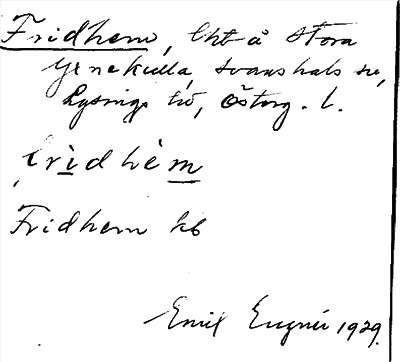 Fridhem, lht å Stora
Yrnekulla, Svanshals sn,
Lysings hd, Österg. l.
frìdhèm
Fridhem kb
Emil Eugnér 1929.